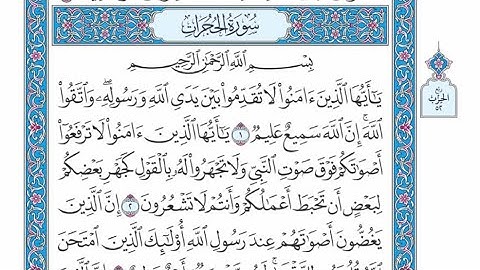 سُورَةُ الْحُجُرَاتِ
بِسْمِ اللَّهِ الرَّحْمَٰنِ الرَّحِيمِ
يَٰٓأَيُّهَا الَّذِينَ ءَامَنُوا۟ لَا تُقَدِّمُوا۟ بَيْنَ يَدَيِ اللَّهِ وَرَسُولِهِۦ ۖ وَاتَّقُوا۟
اللَّهَ ۚ إِنَّ اللَّهَ سَمِيعٌ عَلِيمٌ ١ يَٰٓأَيُّهَا الَّذِينَ ءَامَنُوا۟ لَا تَرْفَعُوٓا۟
أَصْوَٰتَكُمْ فَوْقَ صَوْتِ النَّبِيِّ وَلَا تَجْهَرُوا۟ لَهُۥ بِالْقَوْلِ كَجَهْرِ بَعْضِكُمْ
لِبَعْضٍ أَن تَحْبَطَ أَعْمَٰلُكُمْ وَأَنتُمْ لَا تَشْعُرُونَ ٢ إِنَّ الَّذِينَ
يَغُضُّونَ أَصْوَٰتَهُمْ عِندَ رَسُولِ اللَّهِ أُو۟لَٰٓئِكَ الَّذِينَ امْتَحَنَ
ربع
الحزب
٥٢